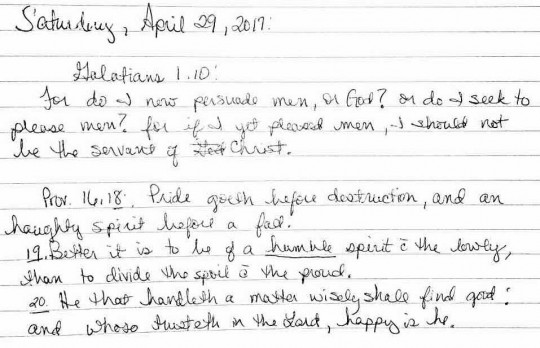 Saturday, April 29, 2017:
Galatians 1.10:
For do I now persuade men, or God? or do I seek to
please men? for if I yet pleased men, I should not
be the servant of Christ.
Prov. 16,18: Pride goeth before destruction, and an
haughty spirit before a fall.
19. Better it is to be of a humble spirit c̄ the lowly,
than to divide the spoil c̄ the proud.
20. He that handleth a matter wisely shall find good:
and whoso trusteth in the Lord, happy is he.